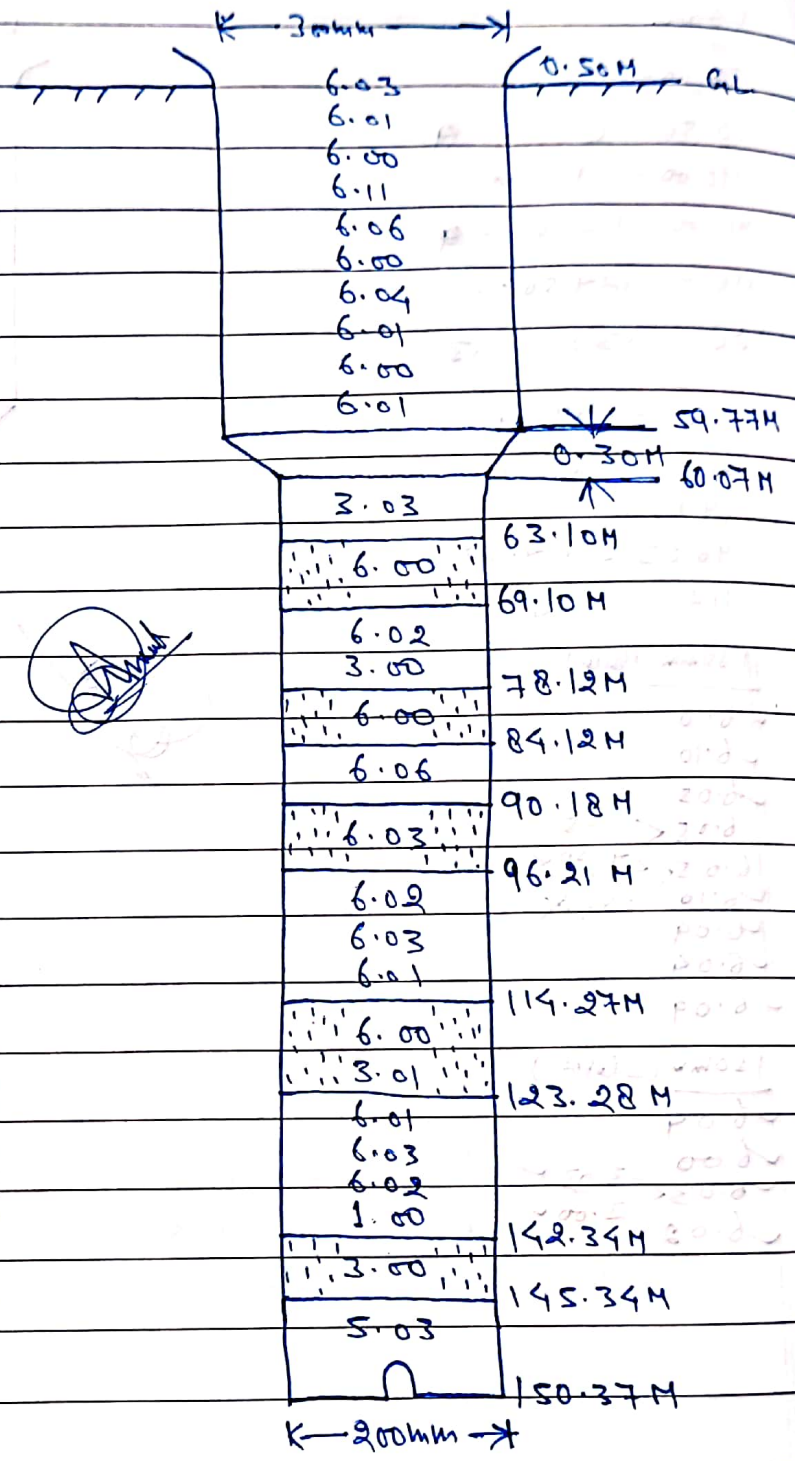 300mm
0.50M GL
6.03
6.01
6.00
6.11
6.06
6.00
6.04
6.01
6.00
6.01
59.77M
0.30M
60.07M
3.03
63.10M
6.00
69.10M
6.02
3.00
78.12M
6.00
84.12M
6.06
90.18M
6.03
96.21 M
6.02
6.03
6.01
114.27M
6.00
3.01
123.28 M
6.01
6.03
6.02
1.00
142.34M
3.00
145.34M
5.03
150.37M
200mm